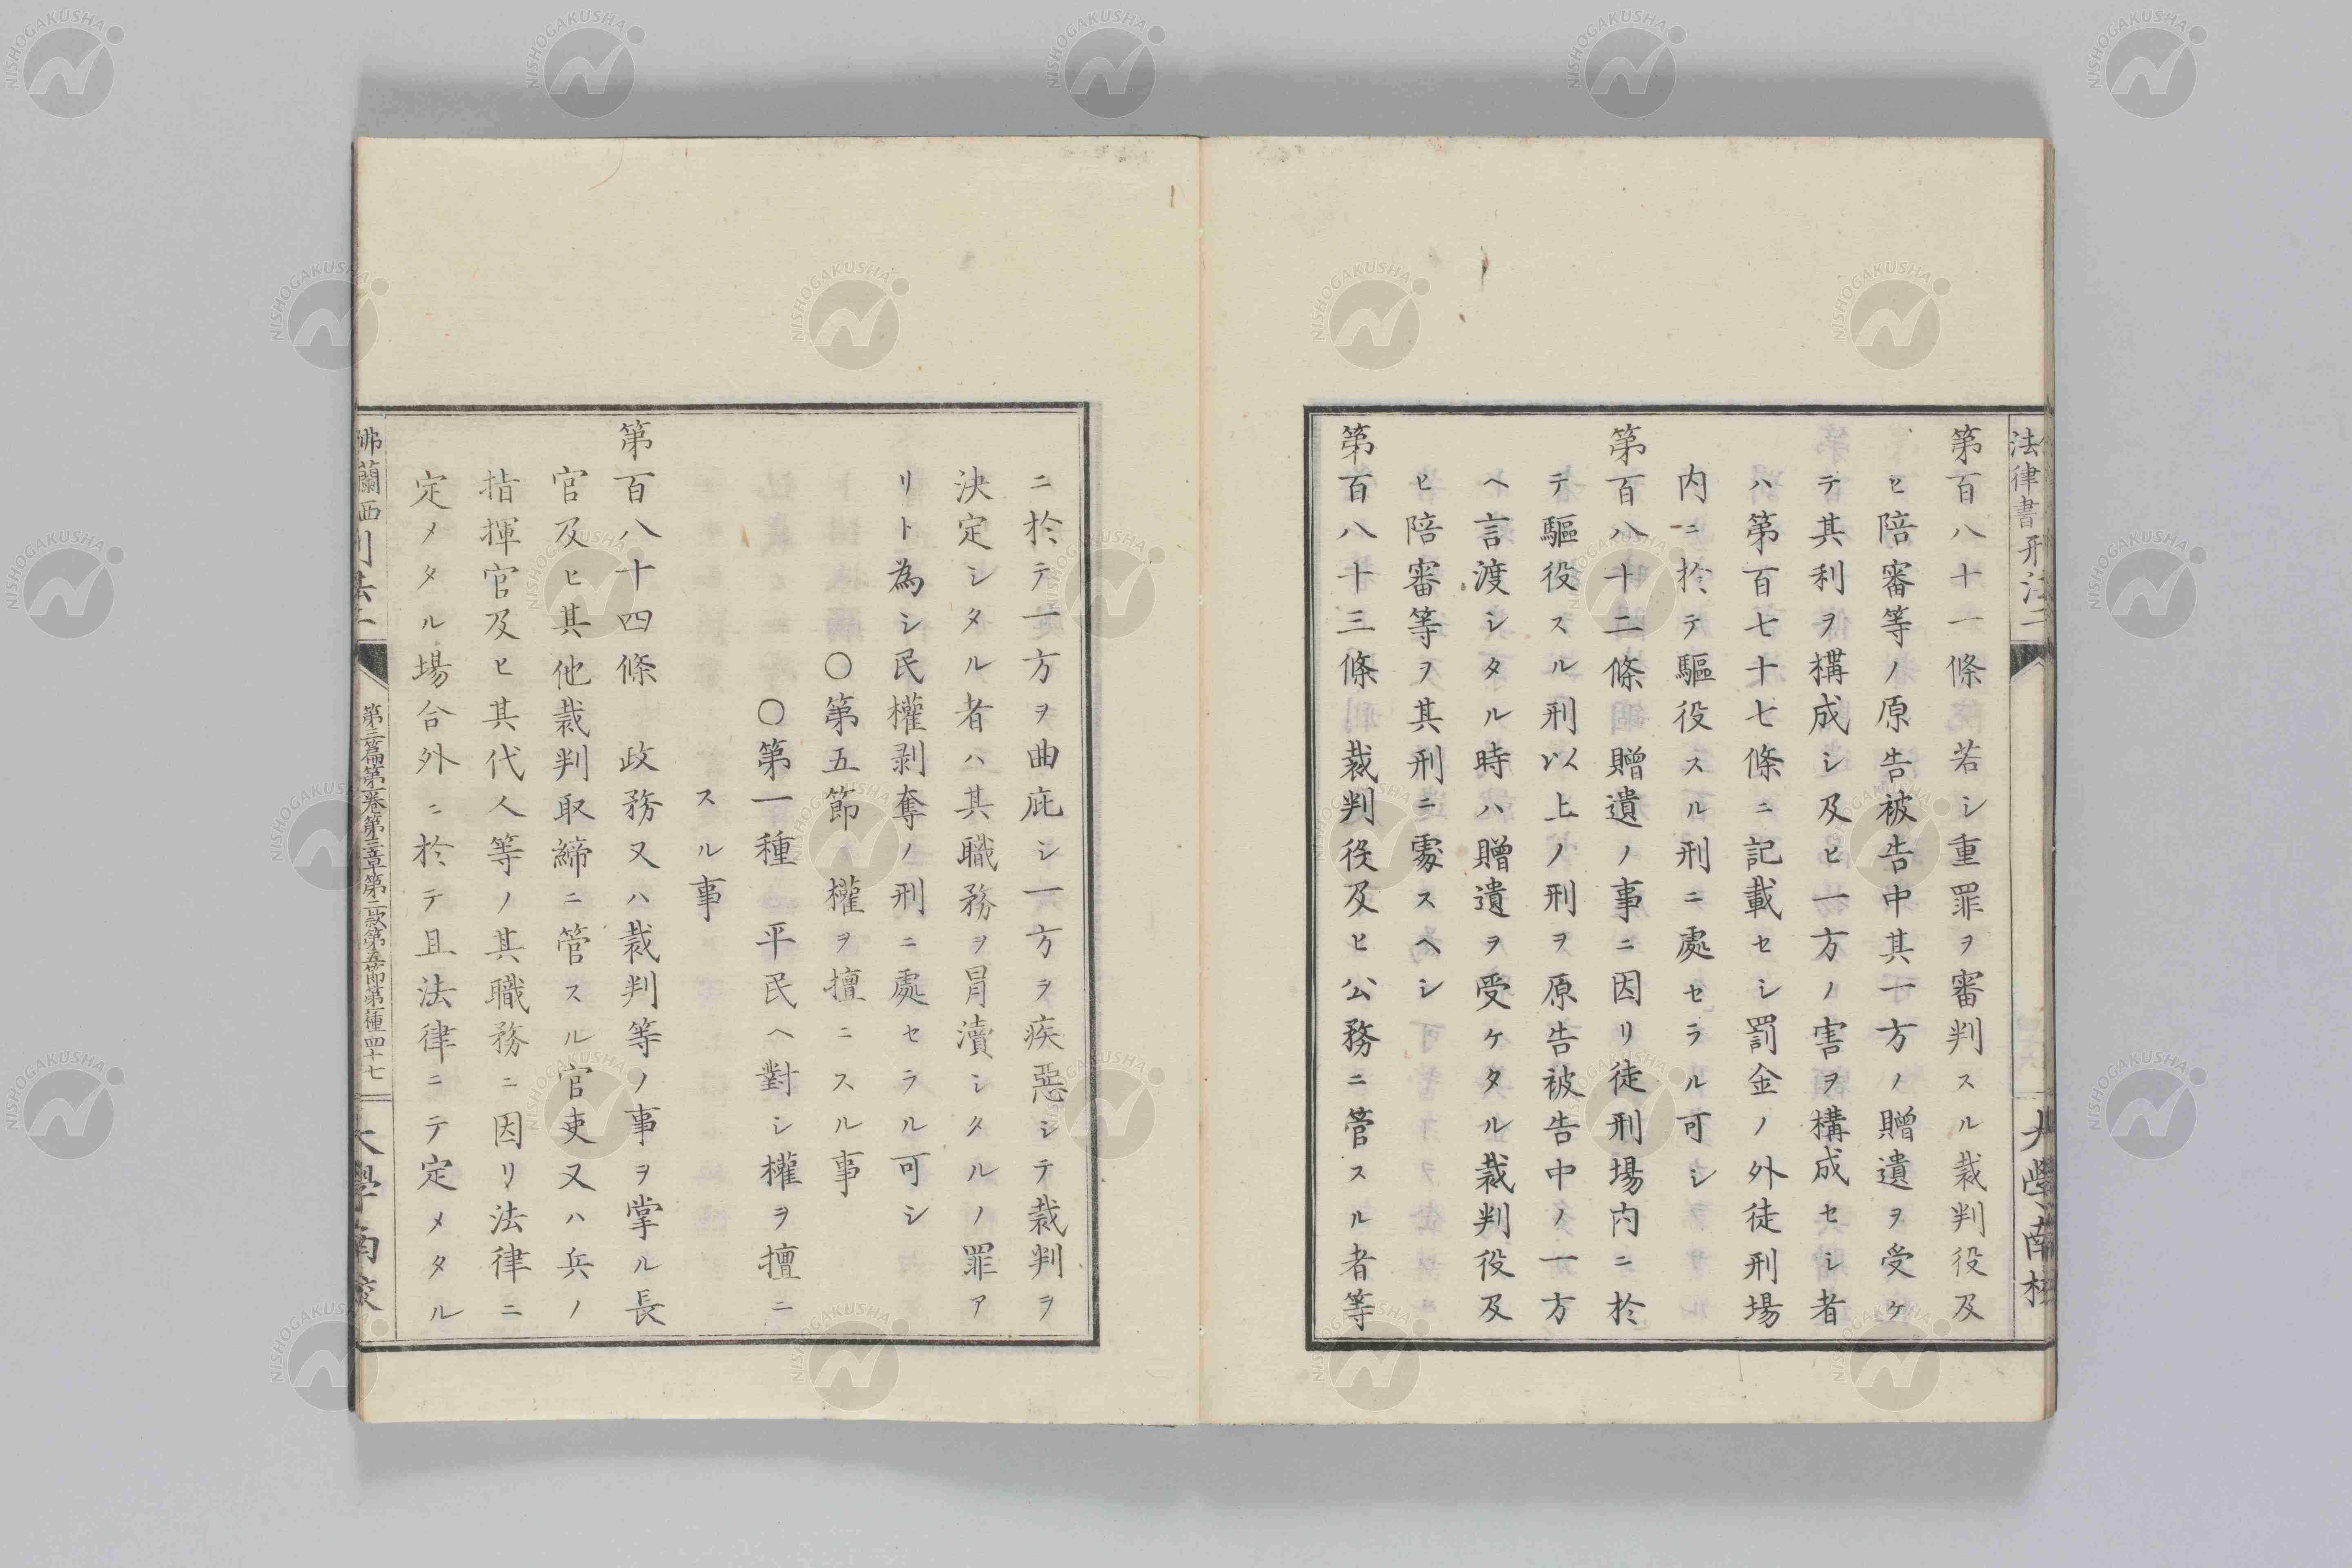 法律書刑法二
大學南校
第百八十一條 若シ重罪ヲ審判スル裁判役及
ヒ陪審等ノ原告被告中其一方ノ贈遺ヲ受ケ
テ其利ヲ構成シ及ヒ一方ノ害ヲ構成セシ者
ハ第百七十七條ニ記載セシ罰金ノ外徒刑場
内ニ於テ驅役スル刑ニ處セラル可シ
第百八十二條 贈遺ノ事ニ因リ徒刑場内ニ於
テ驅役スル刑以上ノ刑ヲ原告被告中ノ一方
ヘ言渡シタル時ハ贈遺ヲ受ケタル裁判役及
ヒ陪審等ヲ其刑ニ處スヘシ
第百八十三條 裁判役及ヒ公務ニ管スル者等
ニ於テ一方ヲ曲庇シ一方ヲ疾惡シテ裁判ヲ
決定シタル者ハ其職務ヲ冐瀆シタルノ罪ア
リト為シ民權剥奪ノ刑ニ處セラル可シ
〇第五節 權ヲ擅ニスル事
〇第一種 平民ヘ對シ權ヲ擅ニ
スル事
第百八十四條 政務又ハ裁判等ノ事ヲ掌ル長
官及ヒ其他裁判取締ニ管スル官吏又ハ兵ノ
指揮官及ヒ其代人等ノ其職務ニ因リ法律ニ
定メタル場合外ニ於テ且法律ニテ定メタル
佛蘭西刑法二
第三篇第一卷第三章第二款第五節第一種 四十七
大學南校
NISHOGAKUSHA